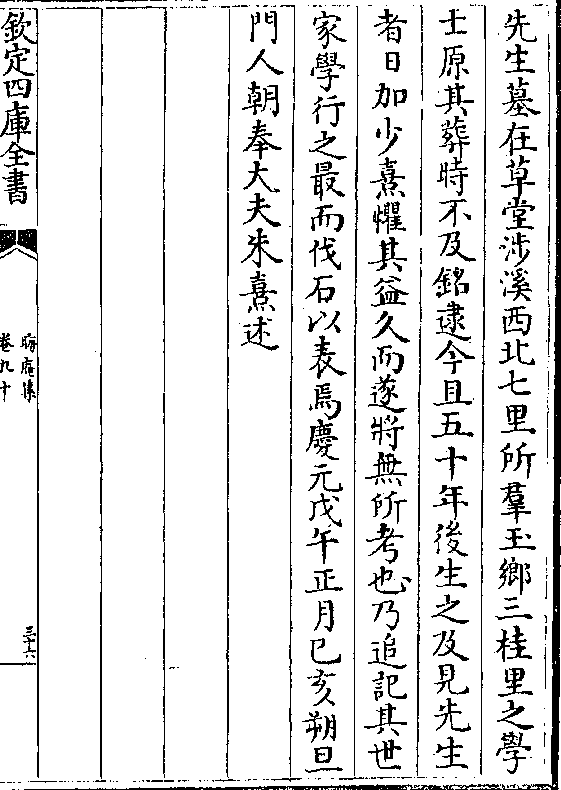 先生墓在草堂涉溪西北七里所羣玉鄉三桂里之學
士原其葬時不及銘逮今且五十年後生之及見先生
者日加少熹懼其益久而遂將無所考也乃追記其世
家學行之最而伐石以表焉慶元戊午正月已亥朔旦
門人朝奉大夫朱熹述
欽定四庫全書
晦庵集
卷九十
三十六